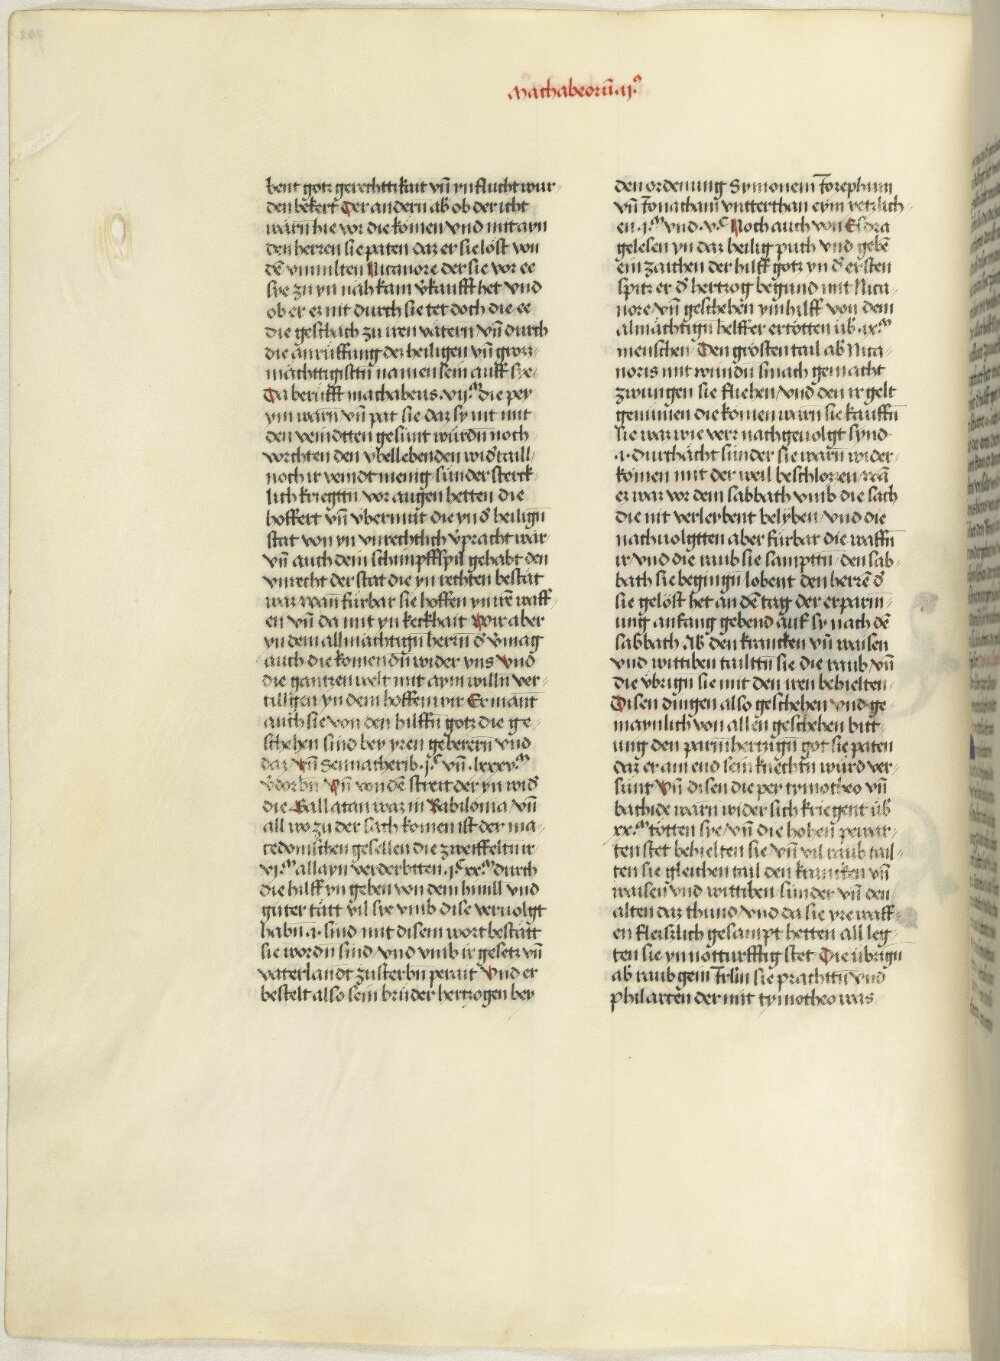 Machabeorū .ij.ꝰ
bent gotz gerechttikait vn̄ yn flucht wur-
den bekert Der andern ab ob der icht
warn hie vor die komen vnd mit ayn
den herren sie paten daz er sie löst von
dē vnmilten Nicanore der sie vor ee
sye zu yn nah kam v̄kaufft het vnd
ob er ez nit durch sie tet doch die ee
die geschach zu iren vätern vn̄ durch
die anrüffung dez heiligen vn̄ groz-
mächttigistn̄ namen sein auff sye-
Da berüfft machabeus .vij.ᵐ die pey
ym warn vn̄ pat sie daz sy nit mit
den veindtten gesünt würdn̄ noch
vorchten den vbellebenden widʼtaill-
noch ir veindt menig sunder sterck-
lich kriegttn̄ vor augen hetten die
hoffert vn̄ vbermüt die yn dʼ heilign̄
stat von yn vnrechtlich v̄pracht wär
vn̄ auch dem schimpffspil gehabt den
vnrecht der stat die yn rechten bestät
war wan̄ fürbar sie hoffen yn irē waff-
en vn̄ da mit yn keckhait Wir aber
yn dem allmächtign̄ herrn̄ dʼ v̄mag
auch die komendn̄ wider vns Vnd
die gantzen welt mit aym willn̄ ver-
tilligen yn dem hoffen wir Er mant
auch sie von den hilffn̄ gotz die ge-
schehen sind bey yren geberern̄ vnd
daz Vn̄ Sennatherib .j.ᶜ vn̄ .lxxxv.ᵐ
v̄dorbn̄ Vn̄ von dē streit der yn widʼ
die Gallatan waz in Babilonia Vn̄
all wo zu der sach komen ist der ma-
cedonischen gesellen die zweiffeltn̄ ir
.vj.ᵐ allayn verderbtten .j.ᶜ xx.ᵐ durch
die hilff yn geben von dem himll vnd
guter tätt vil sye vmb dise veruolgt
habn̄ .a. sind mit disem wort bestätt
sie wordn̄ sind Vnd vmb ir gesetz vn̄
vaterlandt zu sterbn̄ perait Vnd er
bestelt also sein brüder hertzogen bey
den ordenung Symonem Josephum
vn̄ Jonatham vntterthan eym yetzlich-
en .j.ᵐ vnd .v.ᶜ Noch auch von Esdra
gelesen yn daz heilig puch vnd gebē
ein zaichen der hilff gotz yn dʼ ersten
spitz er dʼ hertzog begund mit Nica-
nore vn̄ geschehen ym hilff von dem
almächtign̄ helffer ertotten üb .ix.ᵐ
menschen Den grösten tail ab Nica-
noris mit wundn̄ swach gemacht
zwungen sie fliehen vnd den ir gelt
genumen die komen warn sie kauffn̄
Sie warn wie verr nachgeuolgt synd
.a. durchächt sunder sie warn wider-
komen mit der weil beschlozzen wā
ez waz vor dem sabbath vmb die sach
die nit verleybent belyben vnd die
nachuolgtten aber fürbar die waffn̄
ir vnd die raub sie sampttn̄ den sab-
bath sie begingn̄ lobent den herrē dʼ
sie gelöst het an dē tag der erparm-
ung anfang gebend auf sy nach dē
sabbath Ab den krancken vn̄ waisen
vnd wittiben tailttn̄ sie die raub vn̄
die v̄brign̄ sie mit den iren behielten-
Disen dingen also geschehen vnd ge-
maynlich von allen geschehen bitt-
ung den parmhertzign̄ got sie paten
daz er am end sein knechtn̄ würd ver-
sünt Vn̄ disen die per tymotheo vn̄
bathide warn wider sich kriegent üb
.xx.ᵐ totten sye vn̄ die hohen pewar-
ten stet behielten sie vn̄ vil raub tail-
ten sie gleichen tail den krancken vn̄
waisen vnd wittiben sunder vn̄ den
alten daz thund vnd da sie yre waff-
en fleisilich gesampt hetten all leg-
ten sie yn notturfftig stet Die übrign̄
ab raub gem Jrlm sie prachttn̄ vnd
philarten der mit tymotheo was